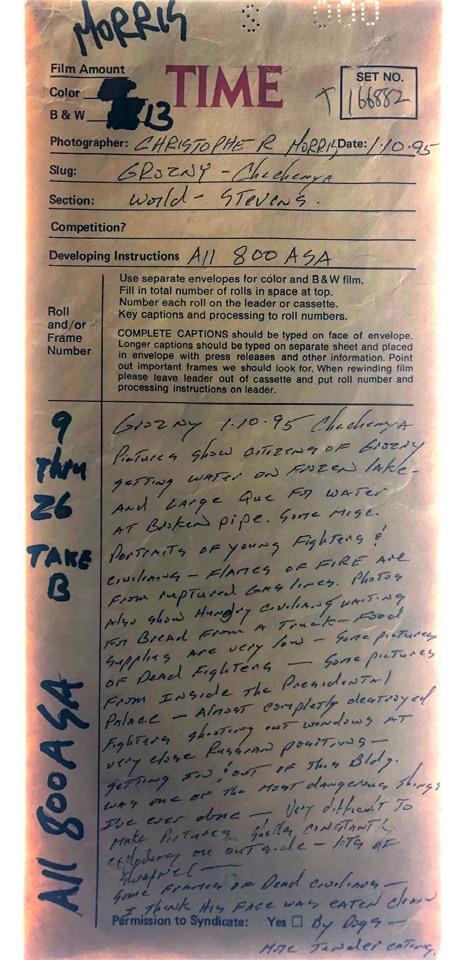 MORRIS
Film Amount
Color
B & W 13
TIME
SET NO.
166882
Photographer: CHRISTOPHER MORRIS Date: 1.10.95
Slug: GROZNY - Chechenya
Section: World - STEVENS.
Competition?
Developing Instructions All 800 ASA
Roll
and/or
Frame
Number
Use separate envelopes for color and B&W film.
Fill in total number of rolls in space at top.
Number each roll on the leader or cassette.
Key captions and processing to roll numbers.
COMPLETE CAPTIONS should be typed on face of envelope.
Longer captions should be typed on separate sheet and placed
in envelope with press releases and other information. Point
out important frames we should look for. When rewinding film
please leave leader out of cassette and put roll number and
processing instructions on leader.
9
Thru
26
TAKE
B
All 800 ASA
Grozny 1.10.95 Chechenya
Pictures show citizens of Grozny
getting water on frozen lake -
and large que for water
at Broken pipe. Some misc.
Portraits of young Fighters &
civilians - Flames of FIRE are
from ruptured gas lines. Photos
also show Hungry civilians waiting
for Bread from a Truck - Food
supplies are very low - Some pictures
of Dead Fighters - Some pictures
from Inside the Presidental
Palace - Almost completly destroyed
fighters shooting out windows at
very close Russian positions -
getting in & out of this Bldg.
was one of the most dangerous things
I've ever done - Very difficult to
make pictures shells constantly
exploding on outside - lots of
shrapnel -
Some frames of Dead civilians -
I think His face was eaten
Permission to Syndicate: Yes By Dogs -
More Tender eating.